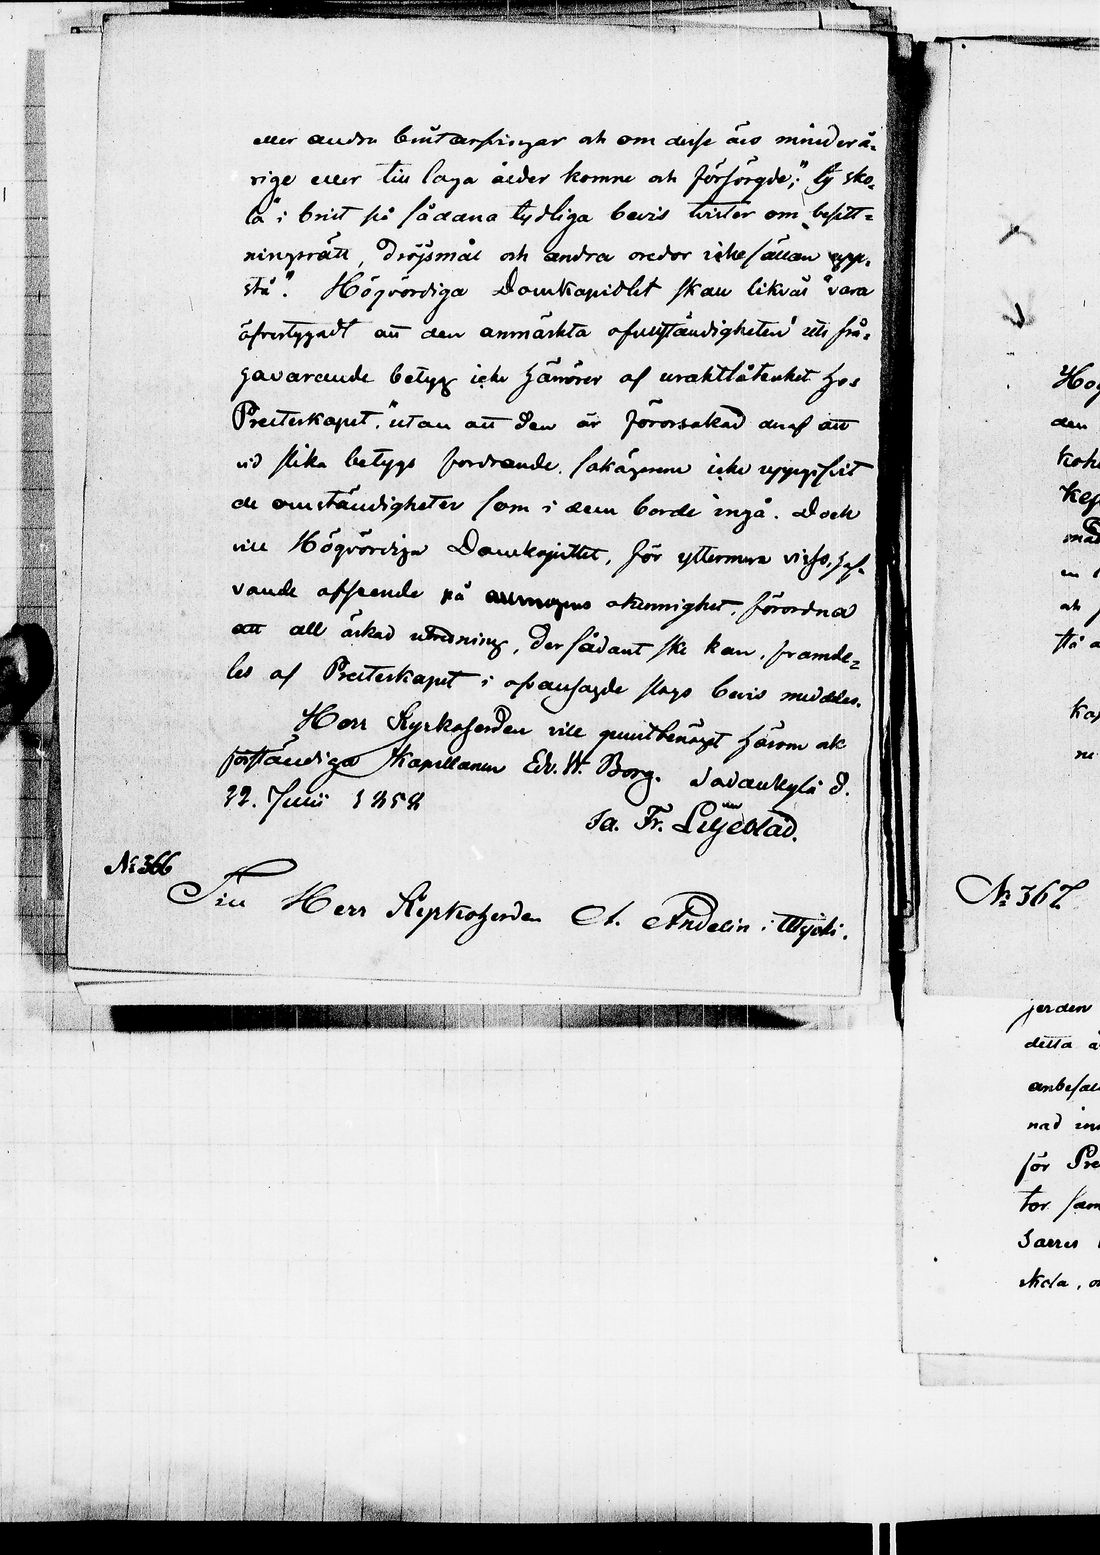 eller andra bröstarfvingar och om desse äro minderå=
rige eller till laga ålder komne och försörgde;" ty sko-
la "i brist på sådana tydliga bevis tvister om besitt=
ningsrätt, dröjsmål och andra oredor icke sällan upp-
stå". Högvördiga Domkapitlet skall likväl "vara
öfvertygadt att den anmärkta ofullständigheten uti frå-
gavarande betyg icke härrörer af uraktlåtenhet hos
Presterskapet," utan att den är förorsakad deraf att
vid slika betygs fordrande, sakägarene icke uppgifvit
de omständigheter som i dem borde ingå. Dock
vill Högvördiga Domkapitlet, för yttermera visso, haf-
vande afseende på okunnighet, förordna
att all äskad utredning, der sådant ske kan, framde=
les af Presterskapet i ofvansagde slags bevis meddelas.
Herr Kyrkoherden ville gunstbenäget härom un-
Kapellanen Edv. W. Borg. Sodankylä d.
22. Junii 1858
Ja. Fr. Liljeblad.
No 366
Till Herr Kyrkoherden A. Andelin i
No 367
Hög
den
jerden
detta
anbefall
nad
för Pre
tor sam
skola,